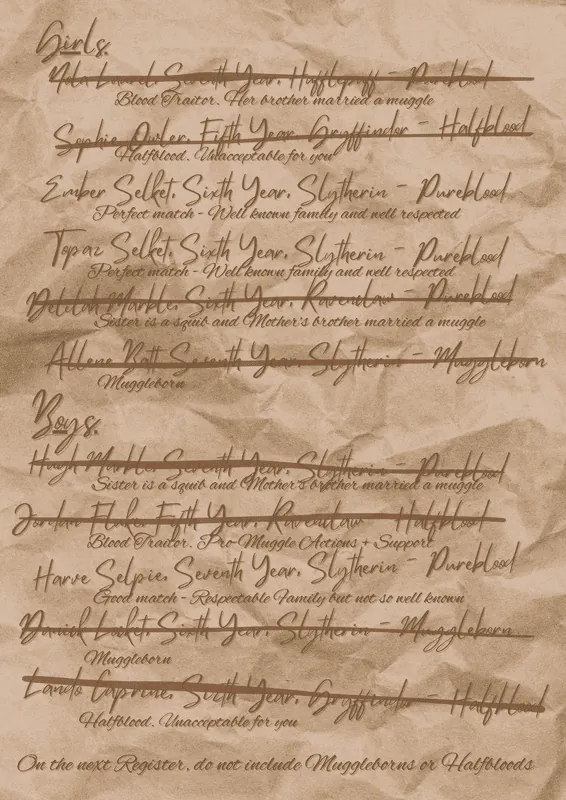 Girls.
Nila Laurel. Seventh Year. Hufflepuff - Pureblood
Blood Traitor. Her brother married a muggle
Sophie Owler. Fifth Year. Gryffindor - Halfblood
Halfblood. Unacceptable for you
Ember Selket. Sixth Year. Slytherin - Pureblood
Perfect match - Well known family and well respected
Topaz Selket. Sixth Year. Slytherin - Pureblood
Perfect match - Well known family and well respected
Delilah Marble. Sixth Year. Ravenclaw - Pureblood
Sister is a squib and Mother's brother married a muggle
Allene Batt Seventh Year. Slytherin - Muggleborn
Muggleborn
Boys.
Hugh Marble. Seventh Year. Slytherin - Pureblood
Sister is a squib and Mother's brother married a muggle
Jordan Fifth Year. Ravenclaw - Halfblood
Blood Traitor. Pro-Muggle Actions + Support
Harve Selpie. Seventh Year. Slytherin - Pureblood
Good match - Respectable Family but not so well known
Daniel Locket. Sixth Year. Slytherin - Muggleborn
Muggleborn
Lando Caprine. Sixth Year. Gryffindor - Halfblood
Halfblood. Unacceptable for you
On the next Register, do not include Muggleborns or Halfbloods